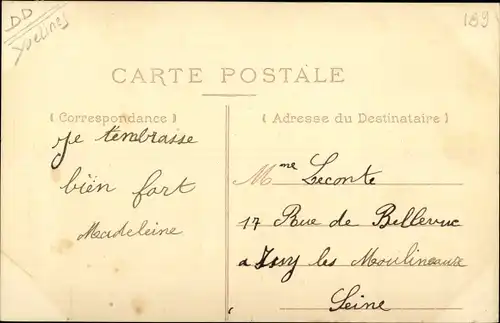 DD
Yvelines
CARTE POSTALE
( Correspondance )
( Adresse du Destinataire )
Je tembrasse
bien fort
Madeleine
Mme Leconte
17 Rue de Bellevue
a Issy les Moulineaux
Seine